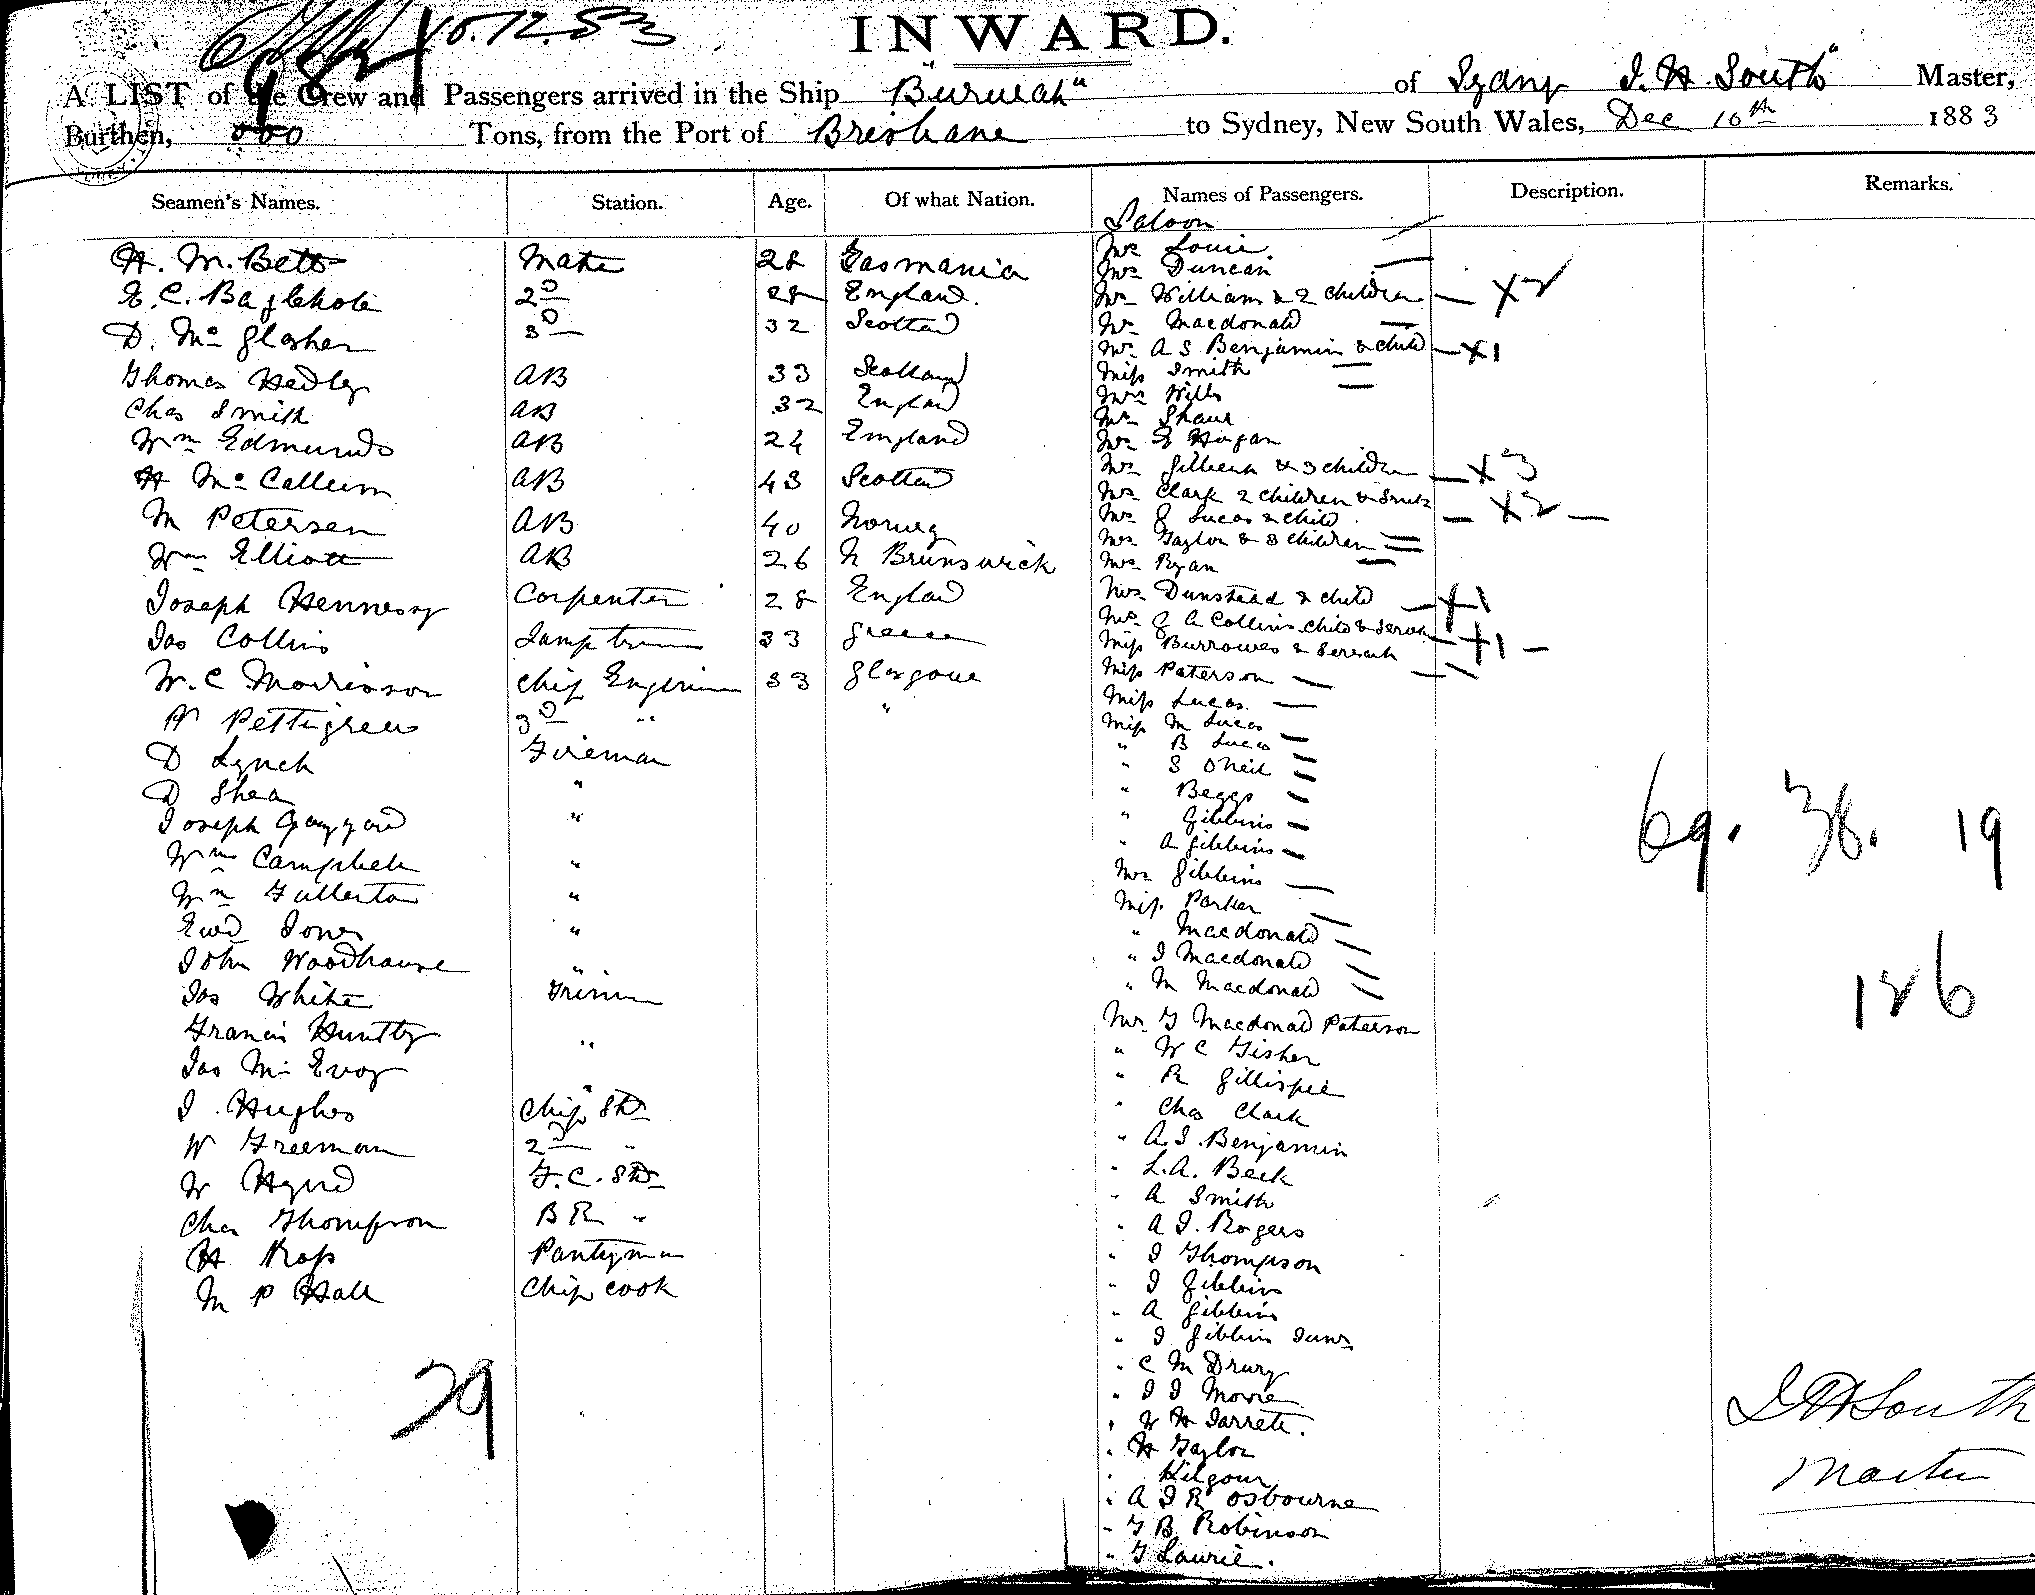 10.12.83
INWARD.
A LIST of the Crew and Passengers arrived in the Ship "Burwah" of Sydney J. H South Master,
Burthen, 500 Tons, from the Port of Brisbane to Sydney, New South Wales, Dec 10th 1883
Seamen's Names. Station. Age. Of what Nation. Names of Passengers. Description. Remarks.
Saloon
H. M. Betts Mate 28 Tasmania
E. C. Baglehole 2D 28 England.
D. Mc Glashen 3D 32 Scotland
Thomas Hedley AB 33 Scotland
Chas Smith AB 32 England
Wm Edmunds AB 24 England
H McCallum AB 43 Scotland
M Petersen AB 40 Norway
Wm Elliott AB 26 N Brunswick
Joseph Hennessy Carpenter 28 England
Jas Collins Lamp trimmer 33 Greece
W. C Morrisson Chief Engineer 33 Glasgow
A Pettigrew 3D " "
D Lynch Fireman
D Shea "
Joseph "
Wm Campbell "
Wm Fullerton "
Ewd Jones "
John Woodhouse "
Jas White Trimmer
Francis Huntly "
Jas Mc Evoy "
J. Hughes Chief Std
W Freeman 2D "
W F. C. Std
Chas Thompson B R "
H Ross Pantryman
M P Hall Chief cook
29
Mrs Lourie
Mrs Duncan
Mrs William & 2 children X2
Mrs Macdonald
Mrs A S Benjamin & child X1
Miss Smith
Mrs Wills
Mrs Shaw
Mrs E Hogan
Mrs Gilbert & 3 children X3
Mrs Clark 2 children & Srvt X2
Mrs J Lucas & child
Mrs Taylor & 3 children
Mrs Ryan
Mrs Dunstead & child X1
Mrs J A Collins child & Servant X1
Miss Burrowes & Servant
Miss Paterson
Miss Lucas.
Miss M Lucas
" B Lucas
" S ONeil
" Beggs
" Gibbins
" A Gibbins
Mrs Gibbins
Miss Parker
" Macdonald
" J Macdonald
" M Macdonald
69. 38. 19
126
Mr. T Macdonald Paterson
" W C Fisher
" R Gillispie
" Chas Clark
" A. S. Benjamin
" L. A. Beck
" A Smith
" A J. Rogers
" J Thompson
" J Gibbins
" A Gibbins
" J Gibbins Junr
" C M Drury
" J J Moore
" W H Jarrett.
" H Taylor
" Kilgour
" A J R Osbourne
" T B Robinson
" T Laurie.
J H South
Master